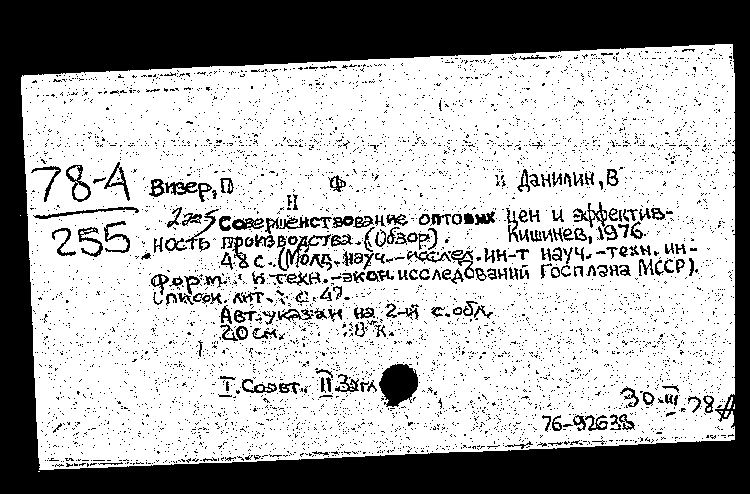 78-А
255
Визер, П Ф и Данилин, В
Н
Совершенствование оптовых цен и эффектив-
ность производства. (Обзор). Кишинев, 1976.
48 с. (Молд. науч.-исслед. ин-т науч.-техн. ин-
форм. и техн.-экон. исследований Госплана МССР).
Список. лит.: с. 47.
Авт. указан на 2-й с. обл.
20 см. к.
I. Соавт. II. Загл
30.III.78
76-92638